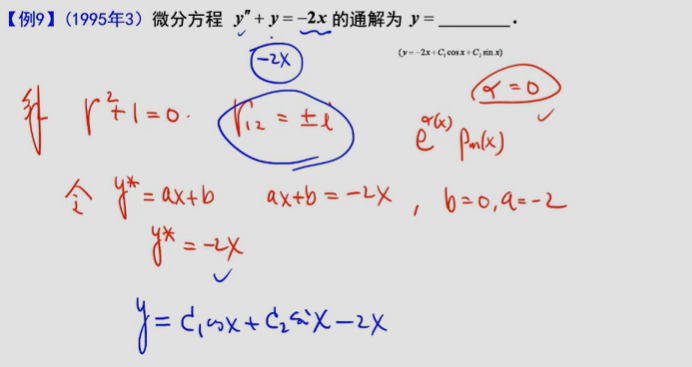 【例9】(1995年3) 微分方程 y″ + y = −2x 的通解为 y = ________.
(y = −2x + C₁ cos x + C₂ sin x)
−2x
α = 0
解 r² + 1 = 0. r₁₂ = ±i
e^α(x) Pm(x)
令 y* = ax+b ax+b = −2x , b=0, a=−2
y* = −2x
y = C₁ cosx + C₂ sinx − 2x